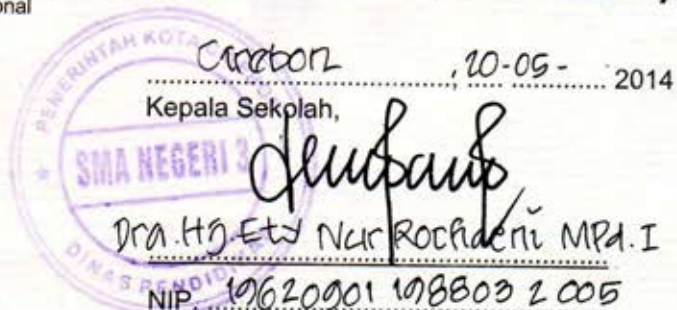 onal
Cirebon, 20-05- 2014
Kepala Sekolah,
PEMERINTAH KOTA
SMA NEGERI 3
DINAS PENDIDI
Dra. Hj. Ety Nur Rochaeni MPd. I
NIP. 19620901 198803 2 005